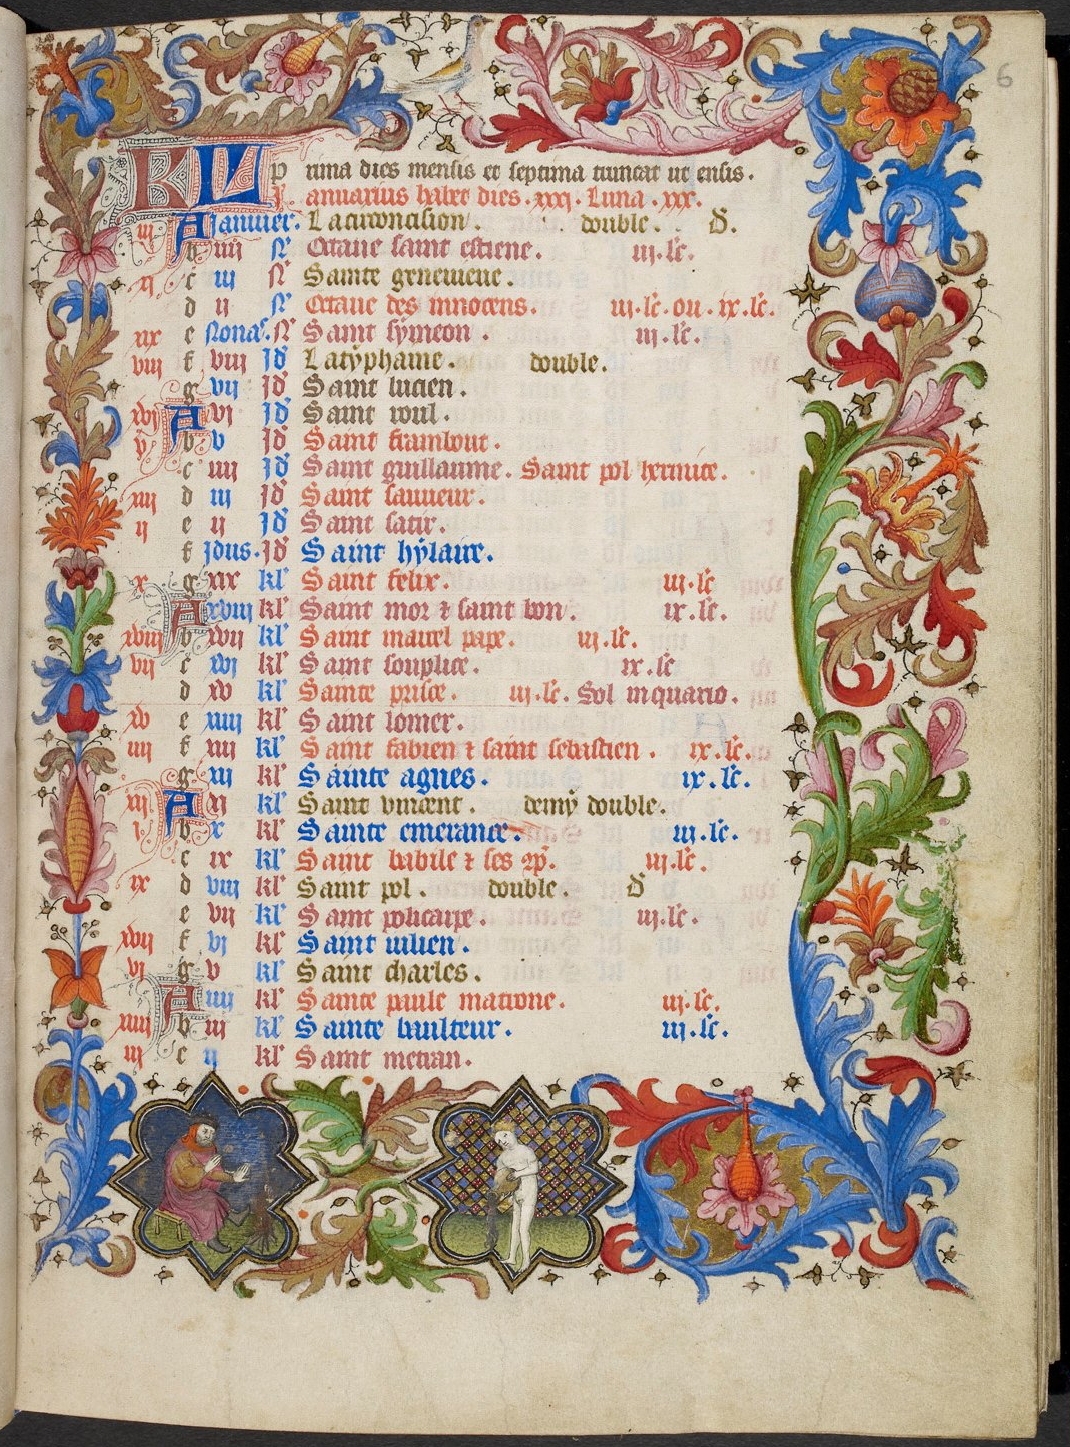 6
KL Prima dies mensis et septima truncat ut ensis.
Januarius habet dies. xxxj. Luna. xxx.
iij A Januier. La circoncision. double. d.
b iiij N Octaue saint estiene. iij. lc.
xj c iij N Sainte geneuieue.
d ij N Octaue des innocens. iij. lc. ou. ix. lc.
xix e Nonas. N Saint symeon. iij. lc.
viij f viij Jd La typhaine. double.
g vij Jd Saint lucien.
xvj A vj Jd Saint
v b v Jd Saint frambout.
c iiij Jd Saint guillaume. Saint pol hermite.
xiij d iij Jd Saint sauueur.
ij e ij Jd Saint satir.
f Jdus. Jd Saint hylaire.
x g xix kl Saint felix. iij. lc
A xviij kl Saint mor ⁊ saint bon. ix. lc.
xviij b xvij kl Saint marcel pape. iij. lc.
vij c xvj kl Saint souplice. ix. lc
d xv kl Sainte prisce. iij. lc. Sol in quario.
xv e xiiij kl Saint lomer.
iiij f xiij kl Saint fabien ⁊ saint sebastien. ix. lc.
g xij kl Sainte agnes. ix. lc.
xij A xj kl Saint vincent. demy double.
j b x kl Sainte emerance. iij. lc.
c ix kl Saint babile ⁊ ses iij. lc.
ix d viij kl Saint pol. double. d
e vij kl Saint policarpe. iij. lc.
xvij f vj kl Saint iulien.
vj g v kl Saint charles.
A iiij kl Sainte paule matrone. iij. lc.
xiiij b iij kl Sainte baulteur. iij. lc.
iij c ij kl Saint metran.